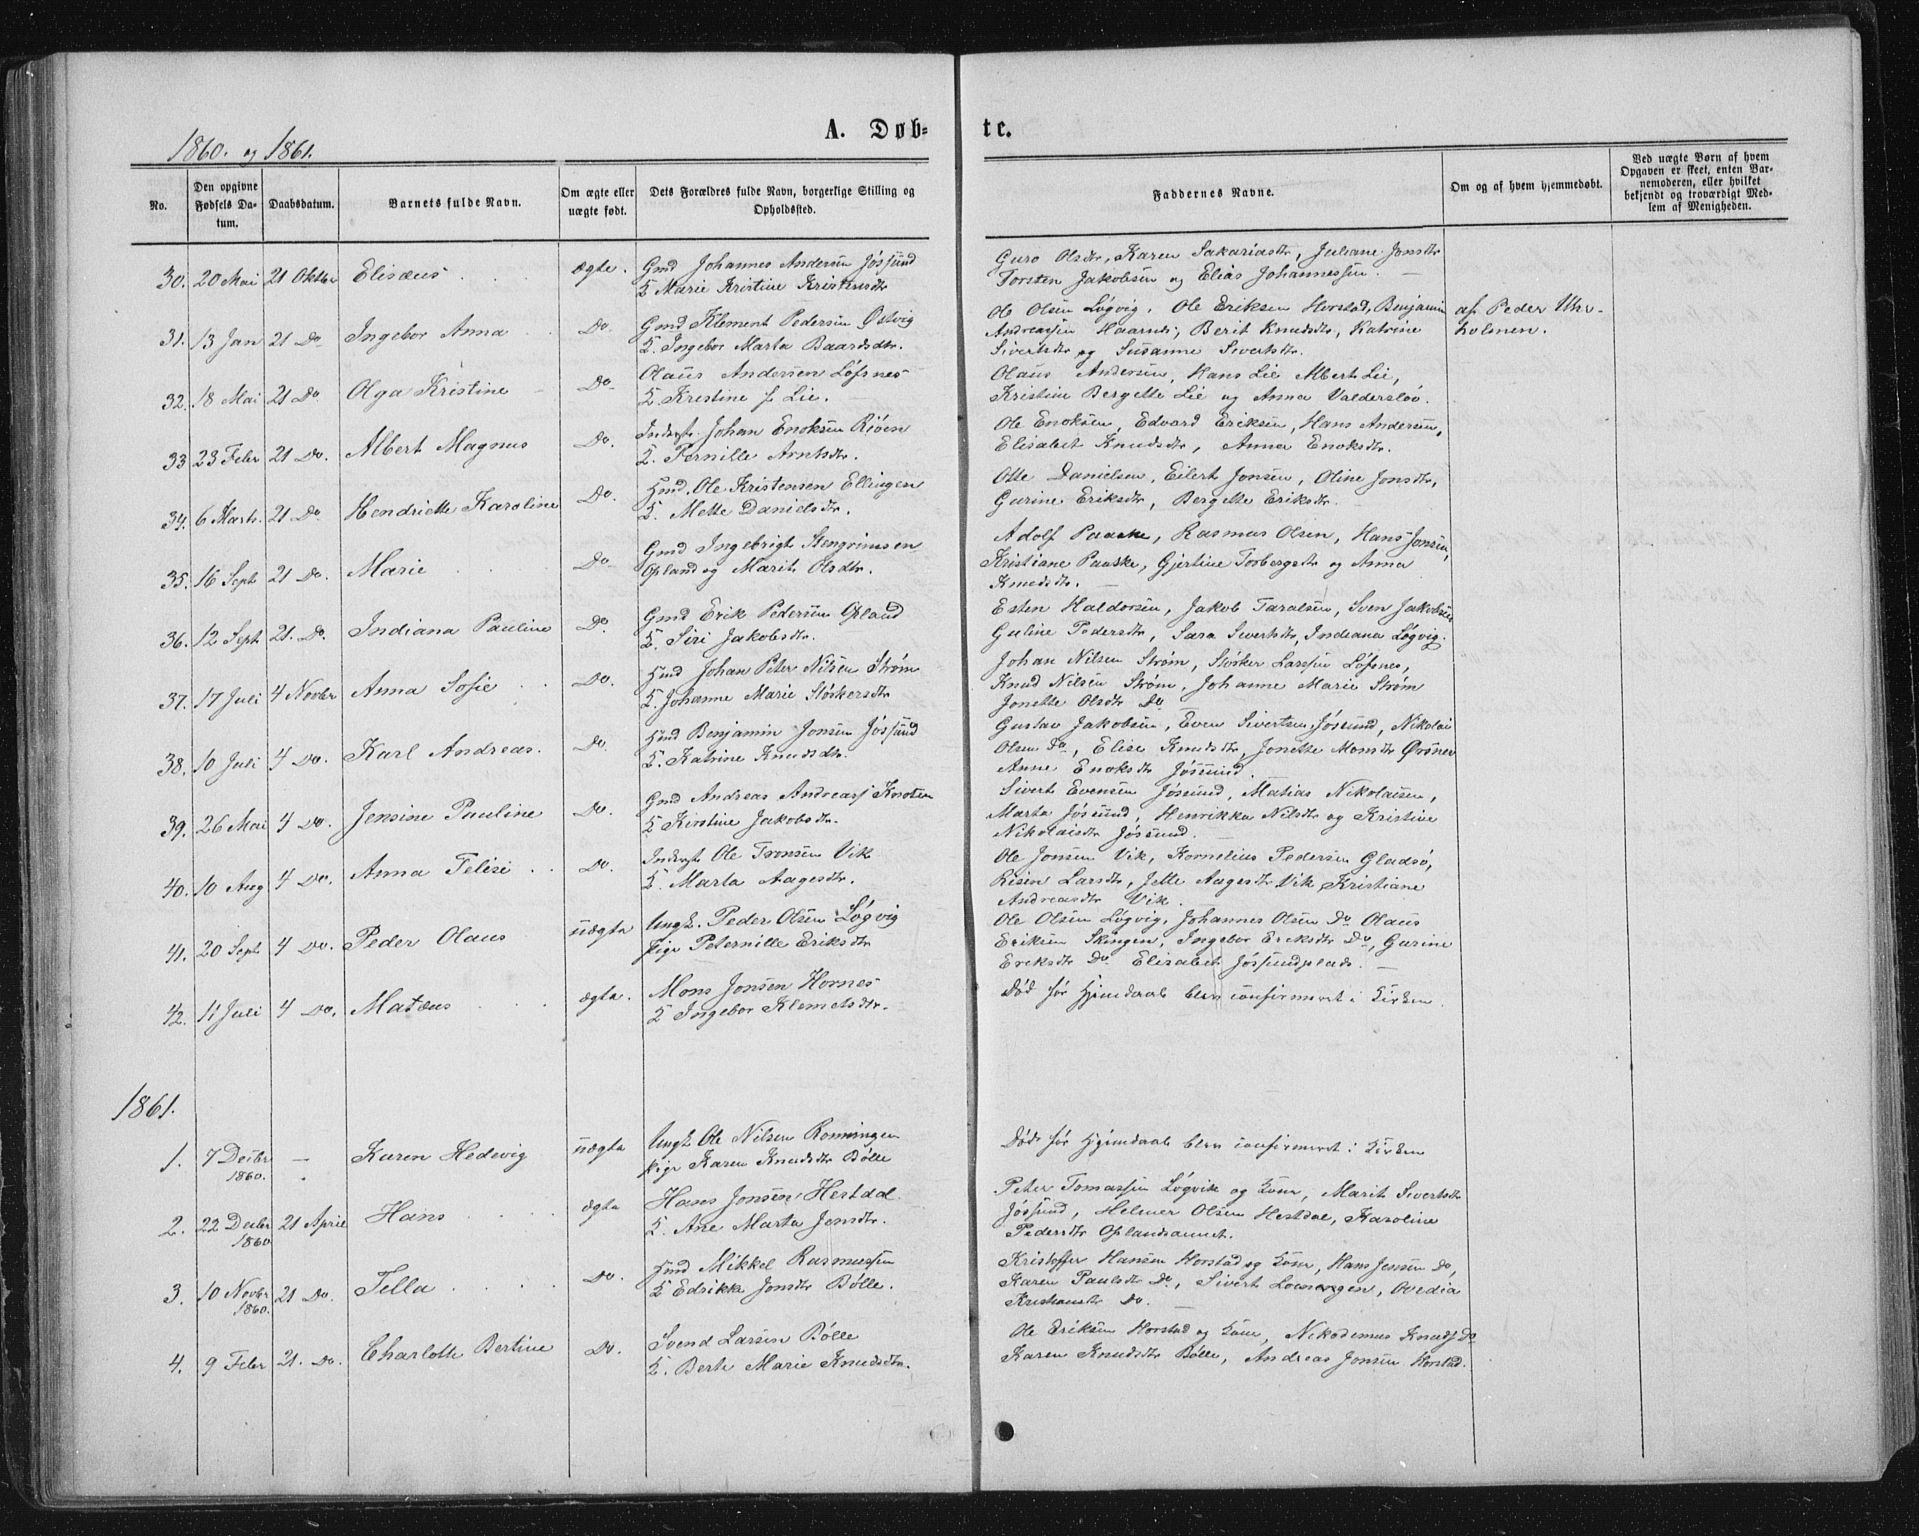 1860. og 1861.
A. Døb-
te.
No.
Den opgivne Fødsels Da-tum.
Daabsdatum.
Barnets fulde Navn.
Om ægte eller uægte født.
Dets Forældres fulde Navn, borgerlige Stilling og Opholdssted.
Faddernes Navne.
Om og af hvem hjemmedøbt.
Ved uægte Børn af hvem Opgaven er skeet, enten Bar-nemoderen, eller hvilket bekjendt og troværdigt Med-lem af Menigheden.
30. 20 Mai 21 Oktbr Elisæus ægte. Gmd Johannes Andersen Jøssund
K Marie Kristine Kristensdtr
Guro Olsdtr, Karen Sakariasdtr, Juliane Jonsdtr
Torsten Jakobsen og Elias Johannessen.
31. 13 Jan 21 Do Ingebor Anna Do. Gmd Klement Pedersen Østvig
K. Ingebor Marta Baardsdtr.
Ole Olsen Løgvig, Ole Eriksen Horstad, Benjamin
Andreassen Haarnes, Berit Knudsdtr, Katrine
Sivertsdtr og Susanne Sivertsdtr.
af Peder
holmen.
32. 18 Mai 21 Do Olga Kristine Do. Olaus Andersen Løfsnes
K Kristine f. Lie.
Olaus Andersen, Hans Lie Albert Lie,
Kristine Bergette Lie og Anna Valdersløv.
33 23 Febr 21 Do. Albert Magnus Do. Inderst. Johan Enoksen Riøen
K. Pernille Arntsdtr.
Ole Enoksen, Edvard Eriksen, Hans Andersen,
Elisabet Knudsdtr, Anna Enoksdtr.
34. 6 Marts. 21 Do Hendriette Karoline Do. Hmd. Ole Kristensen Ellingen
K. Mette Danielsdtr.
Otte Danielsen, Eilert Jonsen, Oline Jonsdtr,
Gurine Eriksdtr, Bergette Eriksdtr.
35. 16 Sept 21 Do. Marie Do. Gmd Ingebrigt Stengrimsen
Opland og Marit Olsdtr.
Adolf Paaske, Rasmus Olsen, Hans Jonsen,
Kristiane Paaske, Gjertine Torbergsdtr og Anna
Knudsdtr.
36. 12 Sept 21. Do. Indiana Pauline Do Gmd Erik Pedersen Opland
K. Siri Jakobsdtr.
Esten Haldorsen, Jakob Taralsen, Sven Jakobsen
Guline Pedersdtr, Sara Sivertsdtr, Indiana Løgvig.
37. 17 Juli 4 Novbr Anna Sofie Do. Hmd Johan Peter Nilsen Strøm
K. Johanne Marie Størkersdtr
Johan Nilsen Strøm, Størker Larssen Løfsnes,
Knud Nilsen Strøm, Johanne Marie Strøm
Jonette Olsdtr Do
38. 10 Juli 4 Do. Karl Andreas. Do. Hmd Benjamin Jonsen Jøssund
K. Katrine Knudsdtr.
Gustav Jakobsen, Even Sivertsen Jøssund, Nikolai
Olsen Do, Elise Knudsdtr, Jonette Monsdtr Ørsnes
Anne Enoksdtr Jøssund.
39. 26 Mai 4 Do. Jensine Pauline Do. Gmd Andreas Andreass Knoten
K Kirstine Jakobsdtr.
Sivert Evensen Jøssund, Matias Nikolaisen,
Marta Jøssund, Henrikka Nilsdtr og Kristine
Nikolaisdtr Jøssund.
40. 10 Aug 4 Do. Anna Felisi Do. Inderst Ole Tronsen Vik
K. Marta Aagesdtr.
Ole Jonsen Vik, Kornelius Pedersen Gladsø,
Risen Larsdtr, Jelle Aagesdtr Vik Kristiane
Andreasdtr Vik.
41. 20 Sept 4 Do. Peder Olaus uægta Ungk. Peder Olsen Løgvig
Pige Peternille Eriksdtr
Ole Olsen Løgvig, Johannes Olsen Do Olaus
Eriksen Skingen, Ingebor Eriksdtr Do, Gurine
Eriksdtr Do Elisabet Jøssundplads.
42. 11 Juli 4 Do. Matæus ægta. Mons Jonsen Hornes
K Ingebor Klemetsdtr.
Død før Hjemdaab blev confirmeret i Kirken.
1861.
1. 7 Decbr 1860. — Karen Hedevig uægta Ungk Ole Nilsen Ronningen
Pige Karen Knudsdtr Bølle
Død før Hjemdaab blev confirmeret i Kirken
2. 22 Decbr 1860 21 April Hans ægta Hans Jonsen Hestdal.
K. Ane Marta Jensdtr.
Peter Tomassen Løgvik og Kone, Marit Sivertsdtr
Jøssund, Helmer Olsen Hestdal, Karoline
Pedersdtr Oplandsaunet.
3. 10 Novbr 1860. 21 Do. Tella Do. Hmd Mikkel Rasmussen
K Edrikke Jonsdtr Bølle.
Kristoffer Hansen Horstad og Kone, Hans Jensen Do,
Karen Paulsdtr Do, Sivert, Ovedia
Kristiansdtr Do.
4. 9 Febr 21. Do. Charlotte Bertine Do. Svend Larsen Bølle
K. Berte Marie Knudsdtr.
Ole Eriksen Horstad og Kone, Nikodemus Knuds Do
Karen Knudsdtr Bølle, Andreas Jonsen Horstad.